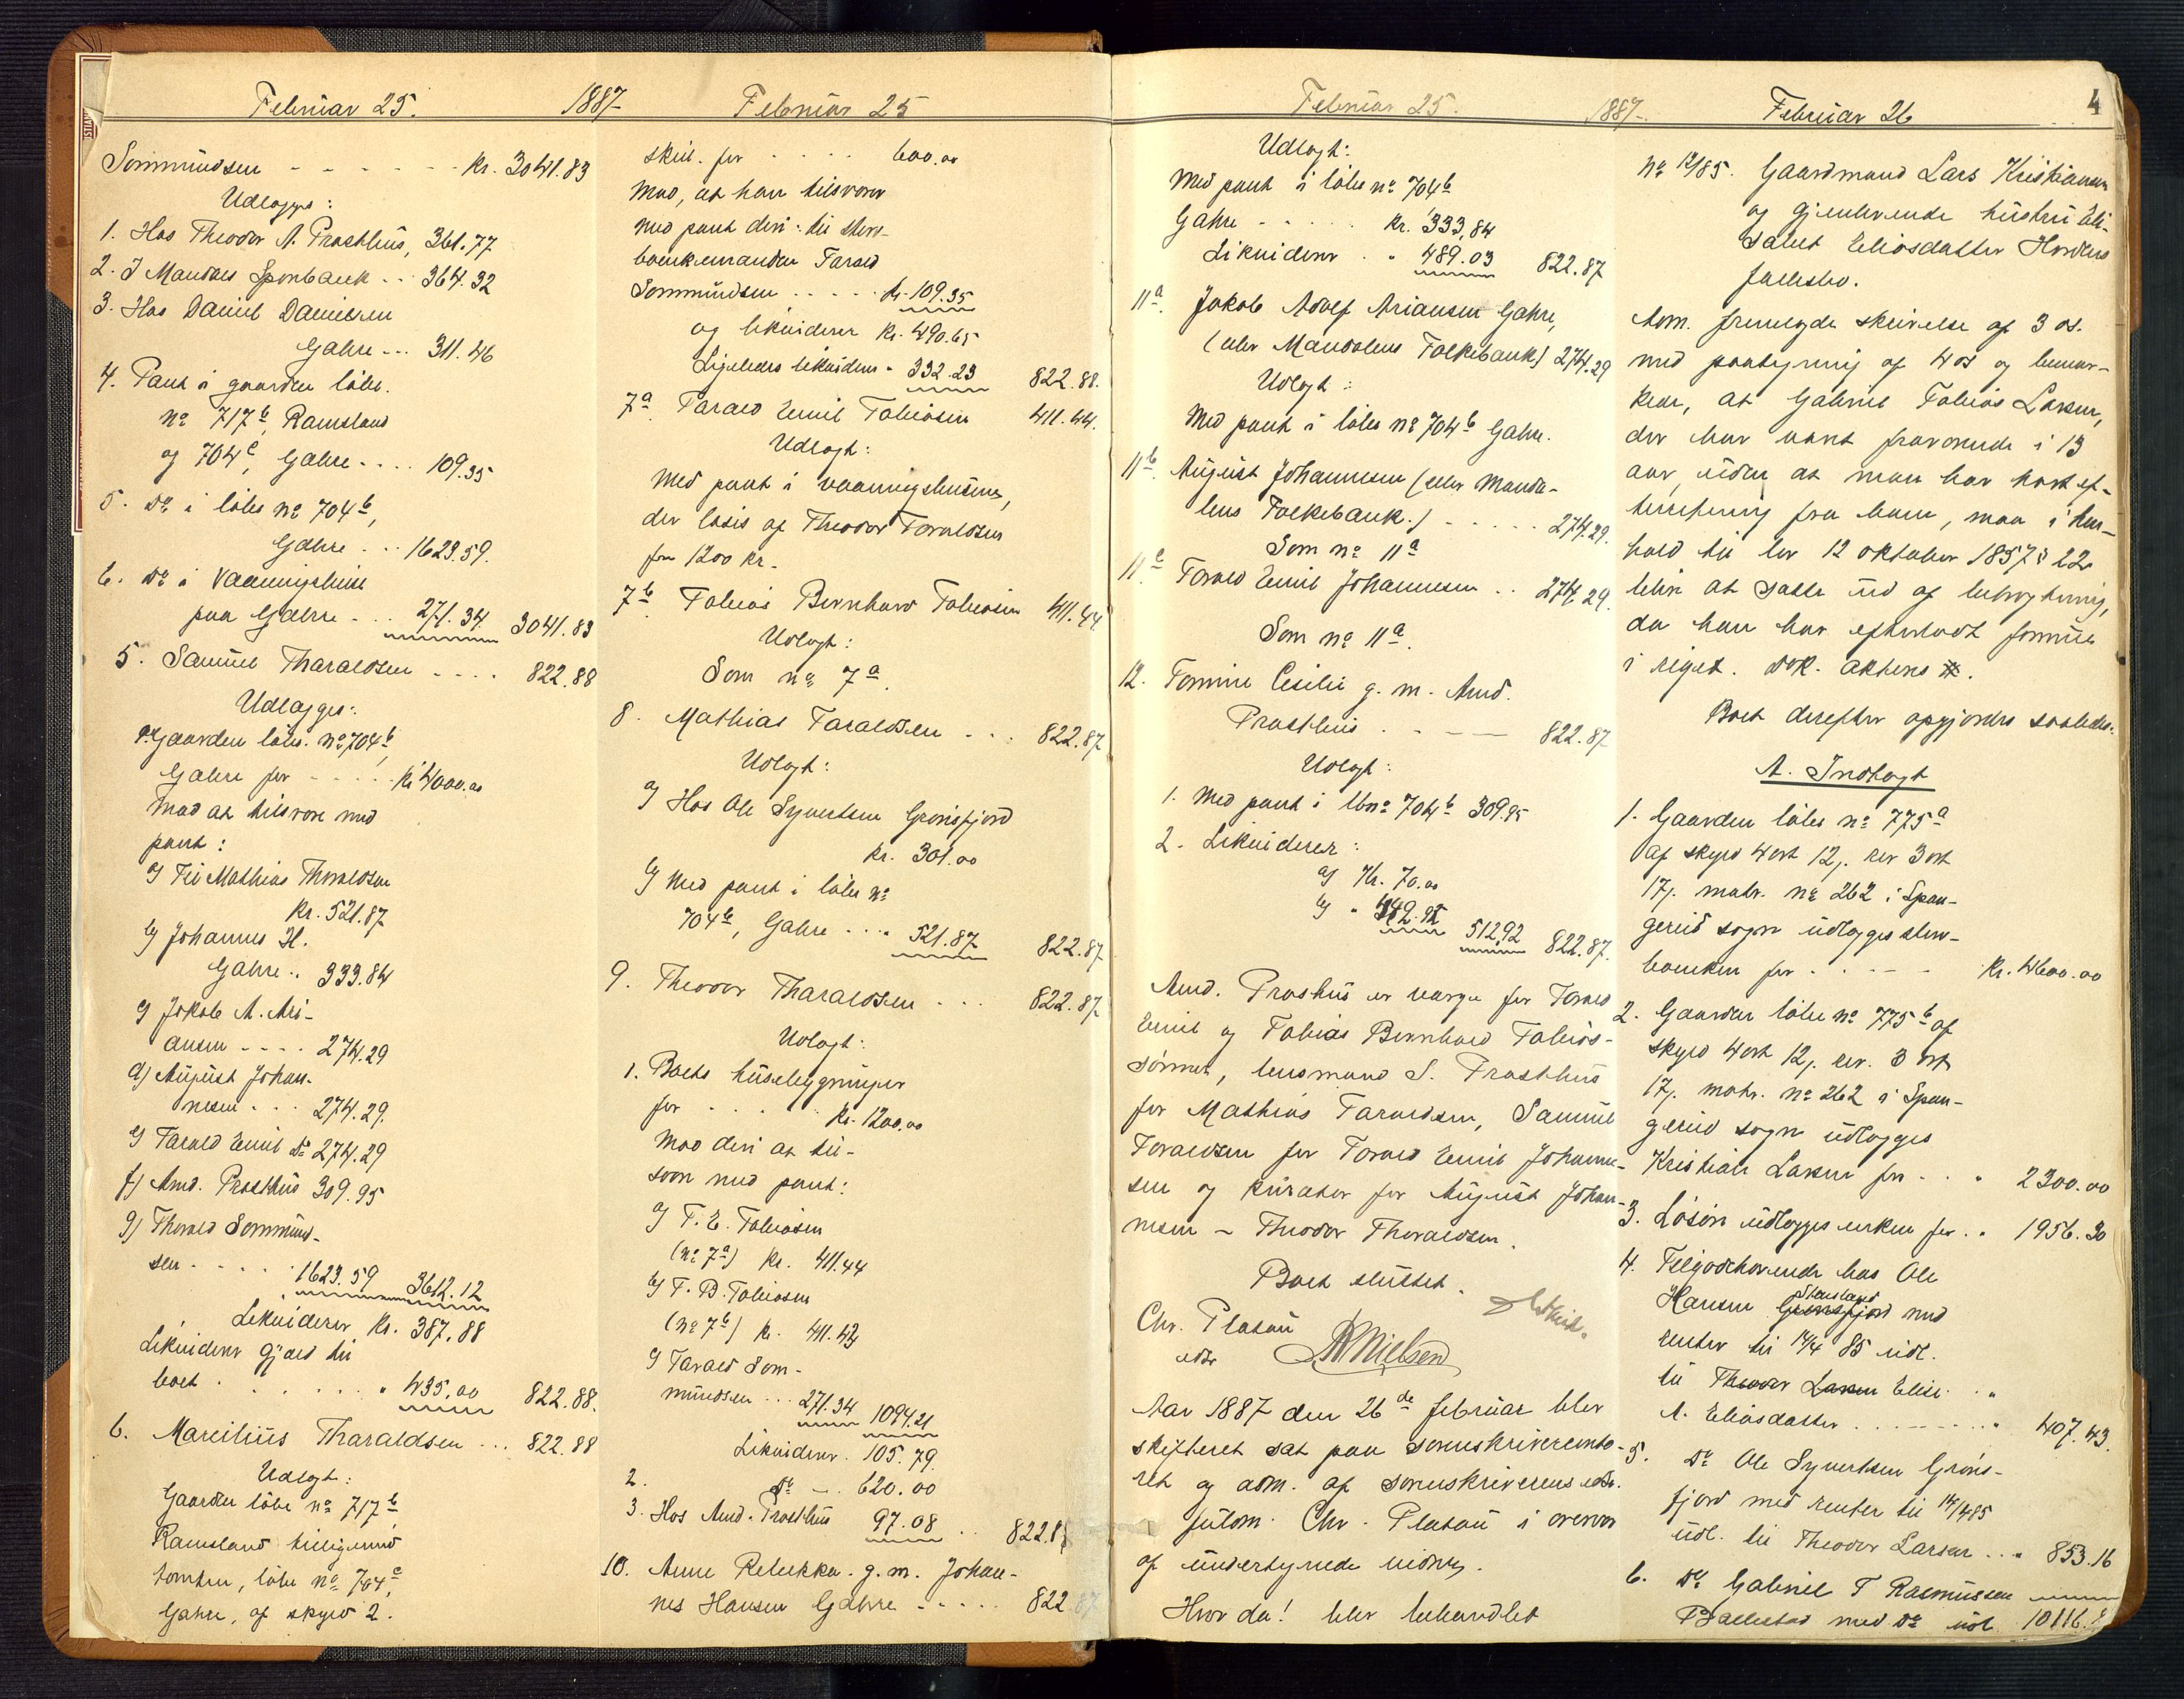 Februar 25.
1887
Sommundsen - - - - - - kr. 3041.83
Udlægges:
1. Hos Theodor A. Præsthus, 361.77
2. I Mandals Sparebank .. 364.32
3. Hos Daniel Danielsen
Gahre ... 311.46
4. Pant i gaarden løbe.
nº 717b, Ramsland
og 704c, Gahre .... 109.35
5. Dº i løbe nº 704b,
Gahre ... 1623.59.
6. Dº i Vaaningshuse
paa Gahre ... 271.34. 3041.83
5. Samuel Tharaldsen .... 822.88
Udlægges:
1. Gaarden løbe. nº 704b,
Gahre for ..... kr 4000.00
mod at tilsvare med
pant:
a) Til Mathias Tharaldsen
kr. 521.87
b) Johannes H.
Gahre .. 333.84
c) Jakob A. Ari-
ansen .... 274.29
d) August Johan-
nesen ... 274.29.
e) Tarald Emil Dº 274.29
f) Amd. Præsthus 309.95
g) Tharald Sommund-
sen ..... 1623.59 3612.12
Likviderer kr. 387.88
Likviderer gjæld til
boet ....... " 435.00 822.88.
6. Marcilius Tharaldsen ... 822.88
Udlagt:
Gaarden løbe nº 717b
Ramsland tilligemed
tomten, løbe nº 704c,
Gahre, af skyld 2.
Februar 25
skil. for ..... 600.00
Mod, at han tilsvarer
med pant deri: til sterv-
boenkemanden Tarald
Sommundsen ..... kr. 109.35
og likviderer kr. 490.65
Ligeledes likviderer " 332.23 822.88.
7a Tarald Emil Tobiasen 411.44.
Udlagt:
Med pant i vaaningshusene,
der løsis af Theodor Toraldsen
for 1200 kr.
7b Tobias Bernhard Tobiasen 411.44
Udlagt:
Som nº 7a.
8. Mathias Taraldsen ... 822.87
Udlagt:
a) Hos Ole Syvertsen Grønsfjord
kr. 301.00
b) Med pant i løbe nº
704b, Gahre ... 521.87 822.87
9. Theodor Tharaldsen ... 822.87
Udlagt:
1. Boets husebygninger
for ..... kr. 1200.00
Mod deri at til-
svare med pant:
a) T. E. Tobiasen
(nº 7a) kr. 411.44
b) T. B. Tobiasen
(nº 7b) kr. 411.43
c) Tarald Som-
mundsen ... 271.34 1094.21
Likviderer. 105.79.
2. Dº — . 620.00
3. Hos Amd. Præsthus 97.08 .. 822.87
10. Anne Rebekka. g. m. Johan-
nes Hansen Gahre ..... 822.87
Februar 25.
1887.
Udlagt:
Med pant i løbe nº 704b
Gahre ..... kr. 333.84
Likviderer . " 489.03 822.87
11a. Jakob Adolf Ariansen Gahre,
(eller Mandalens Folkebank) 274.29
Udlagt:
Med pant i løbe nº 704b Gahre.
11b. August Johannesen (eller Manda-
lens Folkebank.) ..... 274.29.
Som nº 11a
11c Torald Emil Johannesen .. 274.29.
Som nº 11a.
12. Tomine Cesilie g. m. Amd.
Præsthus . . — — 822.87
Udlagt:
1. Med pant i lbnº 704b 309.95
2. Likviderer:
a) Kr. 70.00
b) " 442.92 512.92 822.87.
Amd. Præsthus er værge for Torald
Emil og Tobias Bernhard Tobias-
sønner, lensmand S. Præsthus
for Mathias Taraldsen, Samuel
Toraldsen for Torald Emil Johanne-
sen og kurator for August Johan-
nesen – Theodor Tharaldsen.
Boet sluttet.
Chr. Platau
edsv
Nielsen
Aar 1887 den 26de februar blev
skifteret sat paa sorenskriverconto-
ret og adm. af sorenskriverens edsv.
fuldm. Chr. Platau i overvær
af undertegnede vidner.
Hvor da! blev behandlet
Februar 26
4
nº 12/85. Gaardmand Lars Kristiansen
og gjenlevende hustru Eli-
sabet Eliasdatter Hordens
fællesbo.
Adm. fremlagde skrivelse af 3 ds.
med paategning af 4 ds og bemær-
ker, at Gabriel Tobias Larsen,
der har været fraværende i 13
aar, uden at man har hørt ef-
terretning fra ham, maa i hen-
hold til lov 12 oktober 1857 § 22
blive at sætte ud af betragtning,
da han har efterladt formue
i riget. Dok. aktens #.
Boet derefter opgjordes saaledes:
A. Indtægt
1. Gaarden løbe nº 775a
af skyld 4 ort 12 j. rev 3 ort
17 j. matr. nº 262 i Span-
gereid sogn udlægges sterv-
boenken for ..... kr. 4600.00
2. Gaarden løbe nº 775b af
skyld 4 ort 12 j. rev. 3 ort
17 j. matr. nº 262 i Span-
gereid sogn udlægges
Kristian Larsen for .. " 2300.00
3. Løsøre udlægges enken for .. 1956.30
4. Tilgodehavende hos Ole
Hansen Stensland Grønsfjord med
renter til 14/4 85 udl.
til Theodor Larsen Elise. . "
A. Eliasdatter ........ " 407.43.
5. Dº Ole Syvertsen Grøns-
fjord med renter til 14/4 85
udl. til Theodor Larsen ... " 853.16
6. Dº Gabriel T Rasmussen
Ballestad med Dº udl 10116.